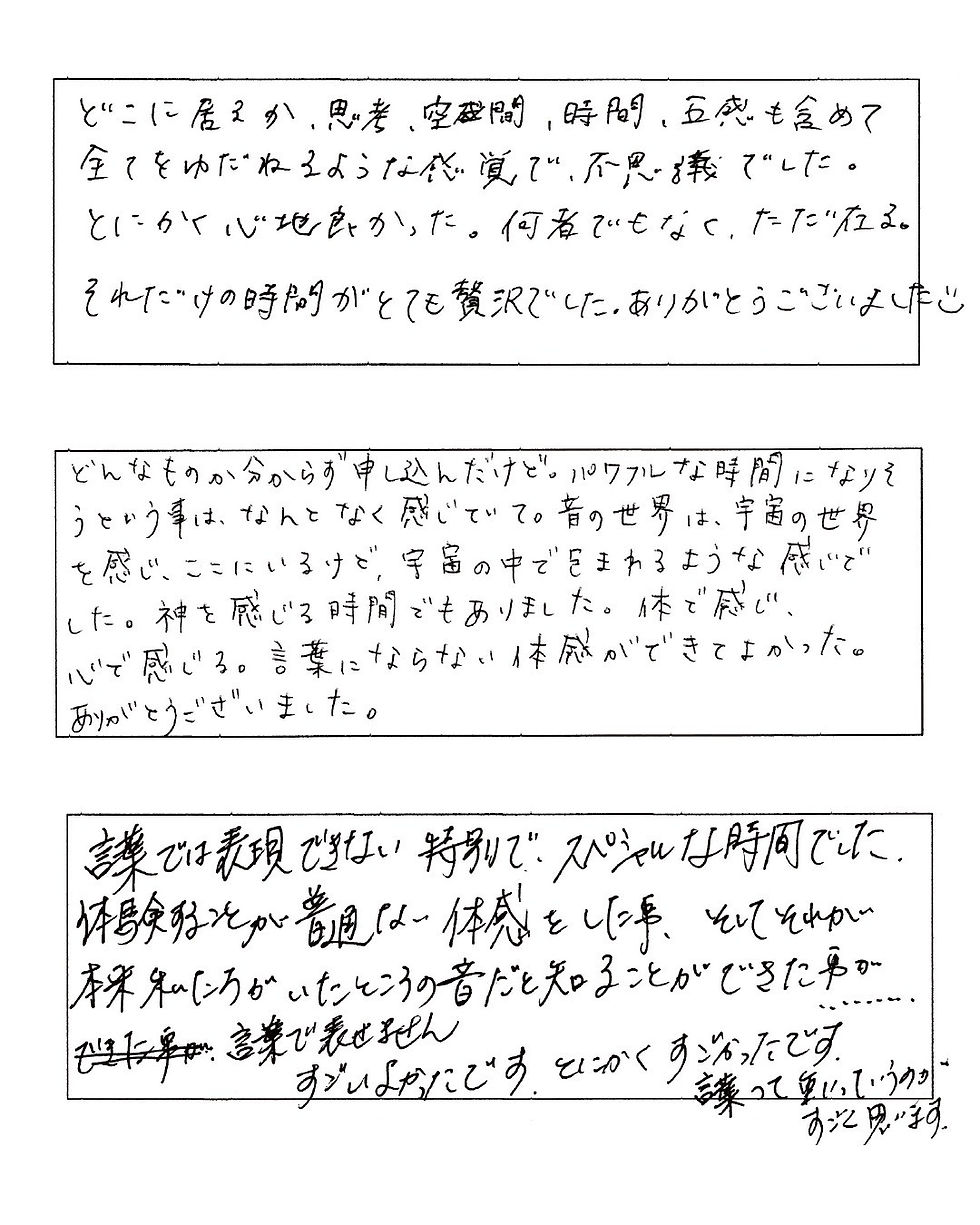 どこに居るか、思考、空間、時間、五感も含めて
全てをゆだねるような感覚で、不思議でした。
とにかく心地良かった。何者でもなく、ただ在る。
それだけの時間がとても贅沢でした。ありがとうございました
どんなものか分からず申し込んだけど。パワフルな時間になりそ
うという事は、なんとなく感じていて。音の世界は、宇宙の世界
を感じ、ここにいるけど、宇宙の中で包まれるような感じで
した。神を感じる時間でもありました。体で感じ、
心で感じる。言葉にならない体感ができてよかった。
ありがとうございました。
言葉では表現できない特別で、スペシャルな時間でした.
体験することが普通ない体感をした事、そしてそれが
本来私たちがいたところの音だと知ることができた事が
できた事が 言葉で表せません
すごいよかったです. とにかくすごかったです.
言葉って重いっていうのが
すごく思います.